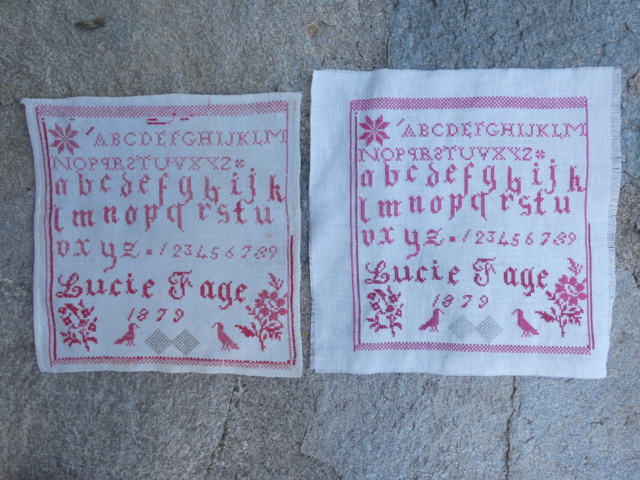 ABCDEFGHIJKLM
NOPQRSTUVXYZ
abcdefghijk
lmnopqrstu
vxyz 123456789
Lucie Fage
1879
ABCDEFGHIJKLM
NOPQRSTUVXYZ
abcdefghijk
lmnopqrstu
vxyz 123456789
Lucie Fage
1879